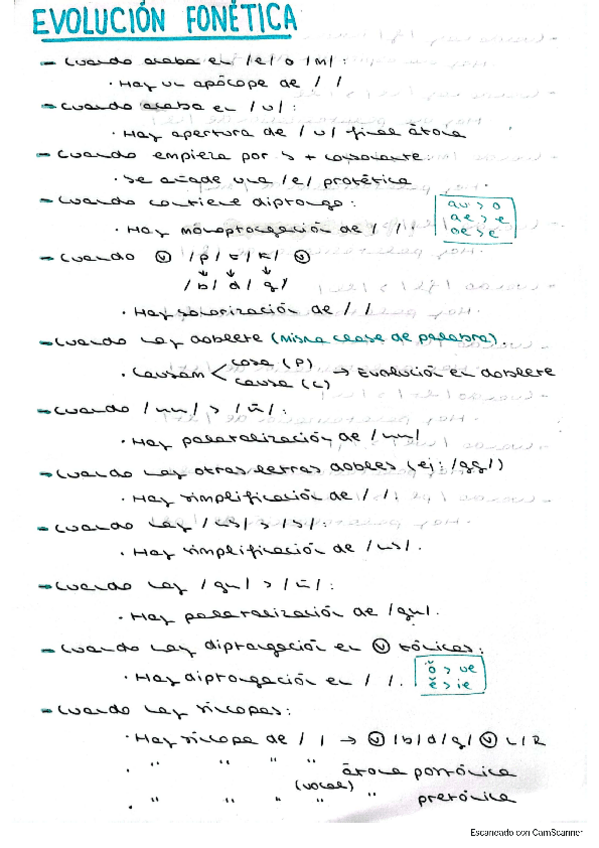 EVOLUCIÓN FONÉTICA
- Cuando acaba en /e/ o /m/:
· Hay un apócope de / /
- Cuando acaba en /u/:
· Hay apertura de /u/ final átona
- Cuando empieza por s + consonante
· Se añade una /e/ protética
- Cuando contiene diptongo:
· Hay monoptongación de / /.
au > o
ae > e
oe > e
- Cuando Ⓥ /p/t/k/ Ⓥ
↓ ↓ ↓
/b/d/g/
· Hay sonorización de / /
- Cuando hay doblete (misma clase de palabra).
· Causam < cosa (P) / causa (C) → Evolución en doblete
- Cuando /nn/ > /ñ/:
· Hay palatalización de /nn/
- Cuando hay otras letras dobles (ej: /gg/)
· Hay simplificación de / /.
- Cuando hay /ns/ > /s/:
· Hay simplificación de /ns/.
- Cuando hay /gn/ > /ñ/:
· Hay palatalización de /gn/.
- Cuando hay diptongación en Ⓥ tónicas:
· Hay diptongación en / /.
ŏ > ue
ĕ > ie
- Cuando hay síncopas:
· Hay síncopa de / / → Ⓥ /b/d/g/ Ⓥ L/R
· " " " " átona postónica
(vocal)
· " " " " " pretónica
Escaneado con CamScanner